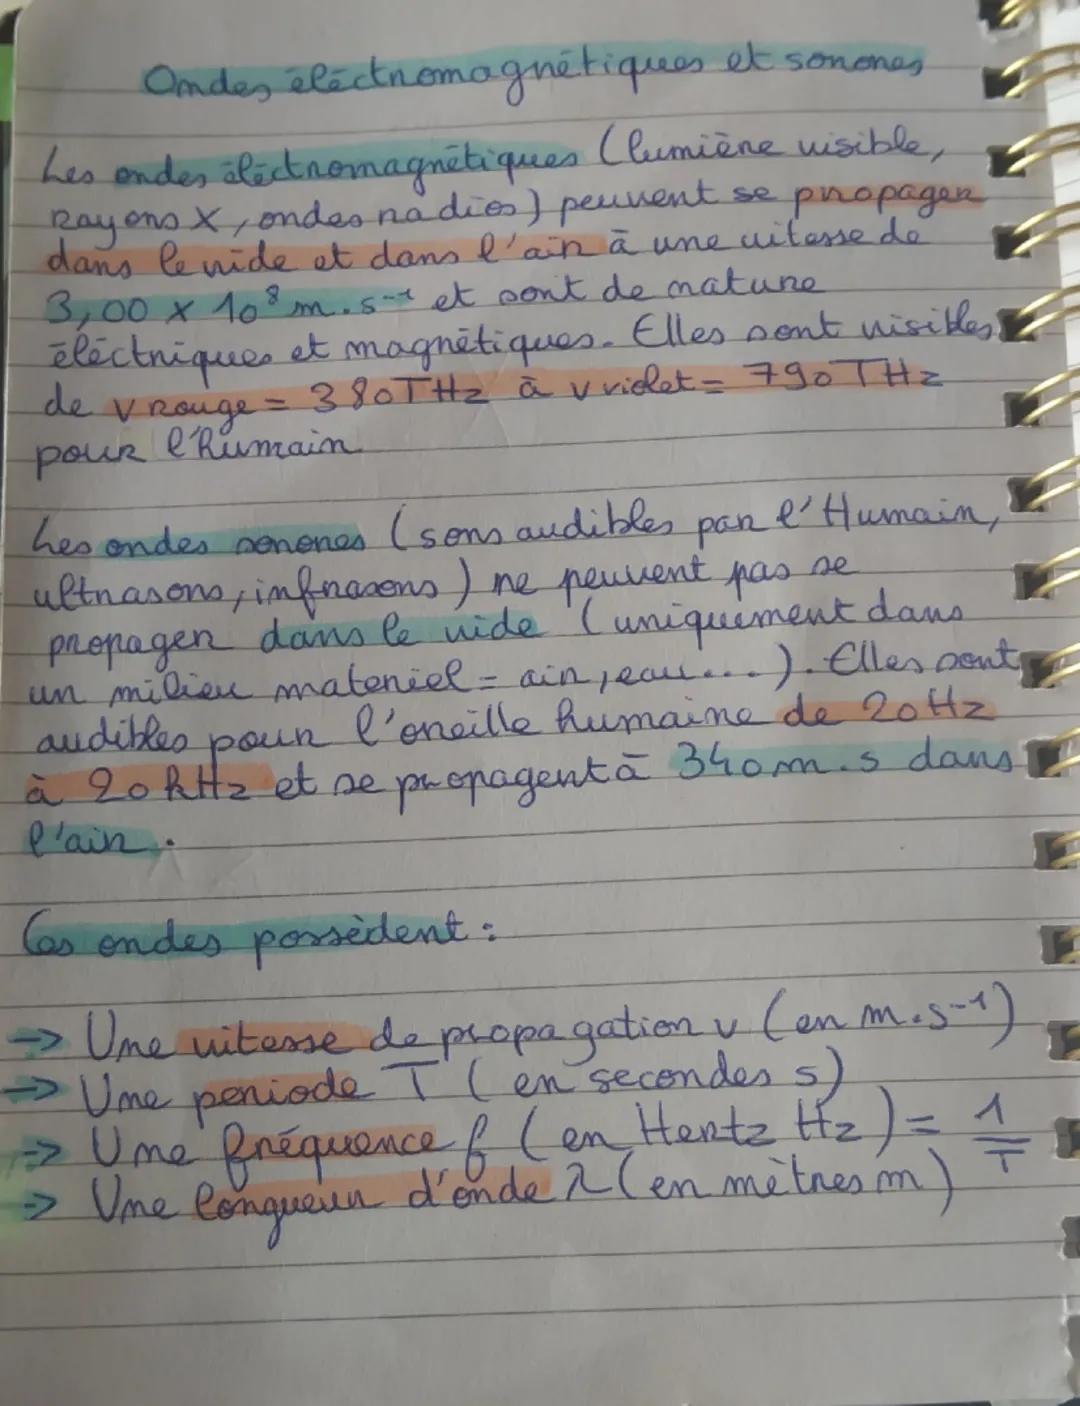 Ondes éléctromagnétiques et sonores
Les ondes éléctromagnétiques (lumière visible,
Rayons X, ondes radios) peuvent se propager
dans le vide et dans l'air à une vitesse de
3,00 x 10⁸ m.s⁻¹ et sont de nature
éléctriques et magnétiques. Elles sont visibles
de v rouge = 380THz à v violet = 790THz
pour l'humain
Les ondes sonores (sons audibles par l'Humain,
ultrasons, infrasons) ne peuvent pas se
propager dans le vide (uniquement dans
un milieu materiel = air, eau...). Elles sont
audibles pour l'oreille humaine de 20Hz
à 20kHz et se propagent à 340m.s dans
l'air.
Ces ondes possèdent :
→ Une vitesse de propagation v (en m.s⁻¹)
→ Une periode T (en secondes s)
→ Une fréquence f (en Hertz Hz) = 1/T
→ Une longueur d'onde λ (en mètres m)